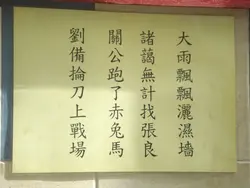 大雨飄飄灑濕墻
諸謁無計找張良
關公跑了赤兔馬
劉備掄刀上戰場